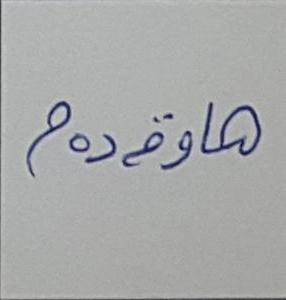 هاوقەدەم